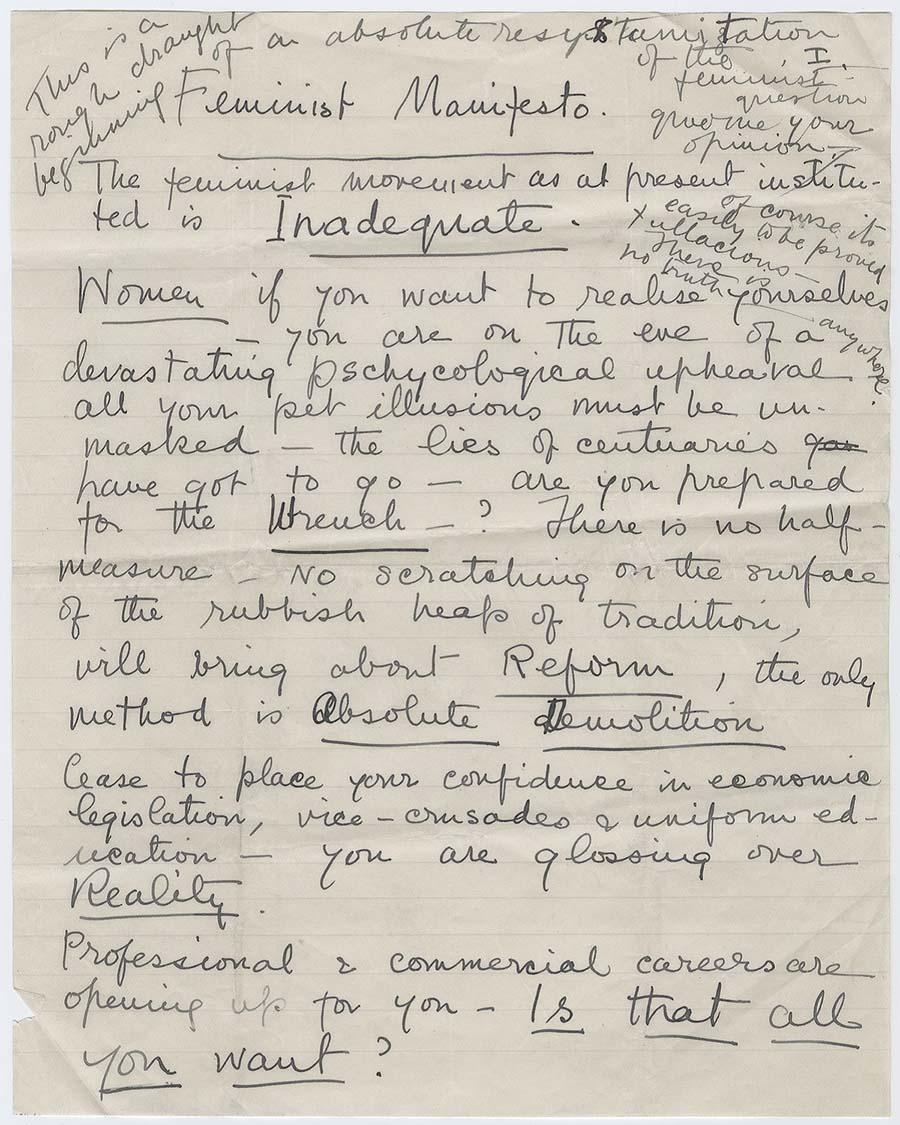 This is a
rough draught
beginning of an absolute resystemitation
of the
feminist
question
give me your
opinion —
I.
Feminist Manifesto.
The feminist movement as at present institu-
ted is Inadequate.
of course its
easily to be proved
fallacious —
There is
no truth
anywhere.
Women if you want to realise yourselves
— you are on the eve of a
devastating pschycological upheaval
all your pet illusions must be un-
masked — the lies of centuaries
have got to go — are you prepared
for the Wrench —? There is no half-
measure — NO scratching on the surface
of the rubbish heap of tradition,
will bring about Reform, the only
method is Absolute Demolition
Cease to place your confidence in economic
legislation, vice-crusades & uniform ed-
ucation — you are glossing over
Reality.
Professional & commercial careers are
opening up for you — Is that all
you want?